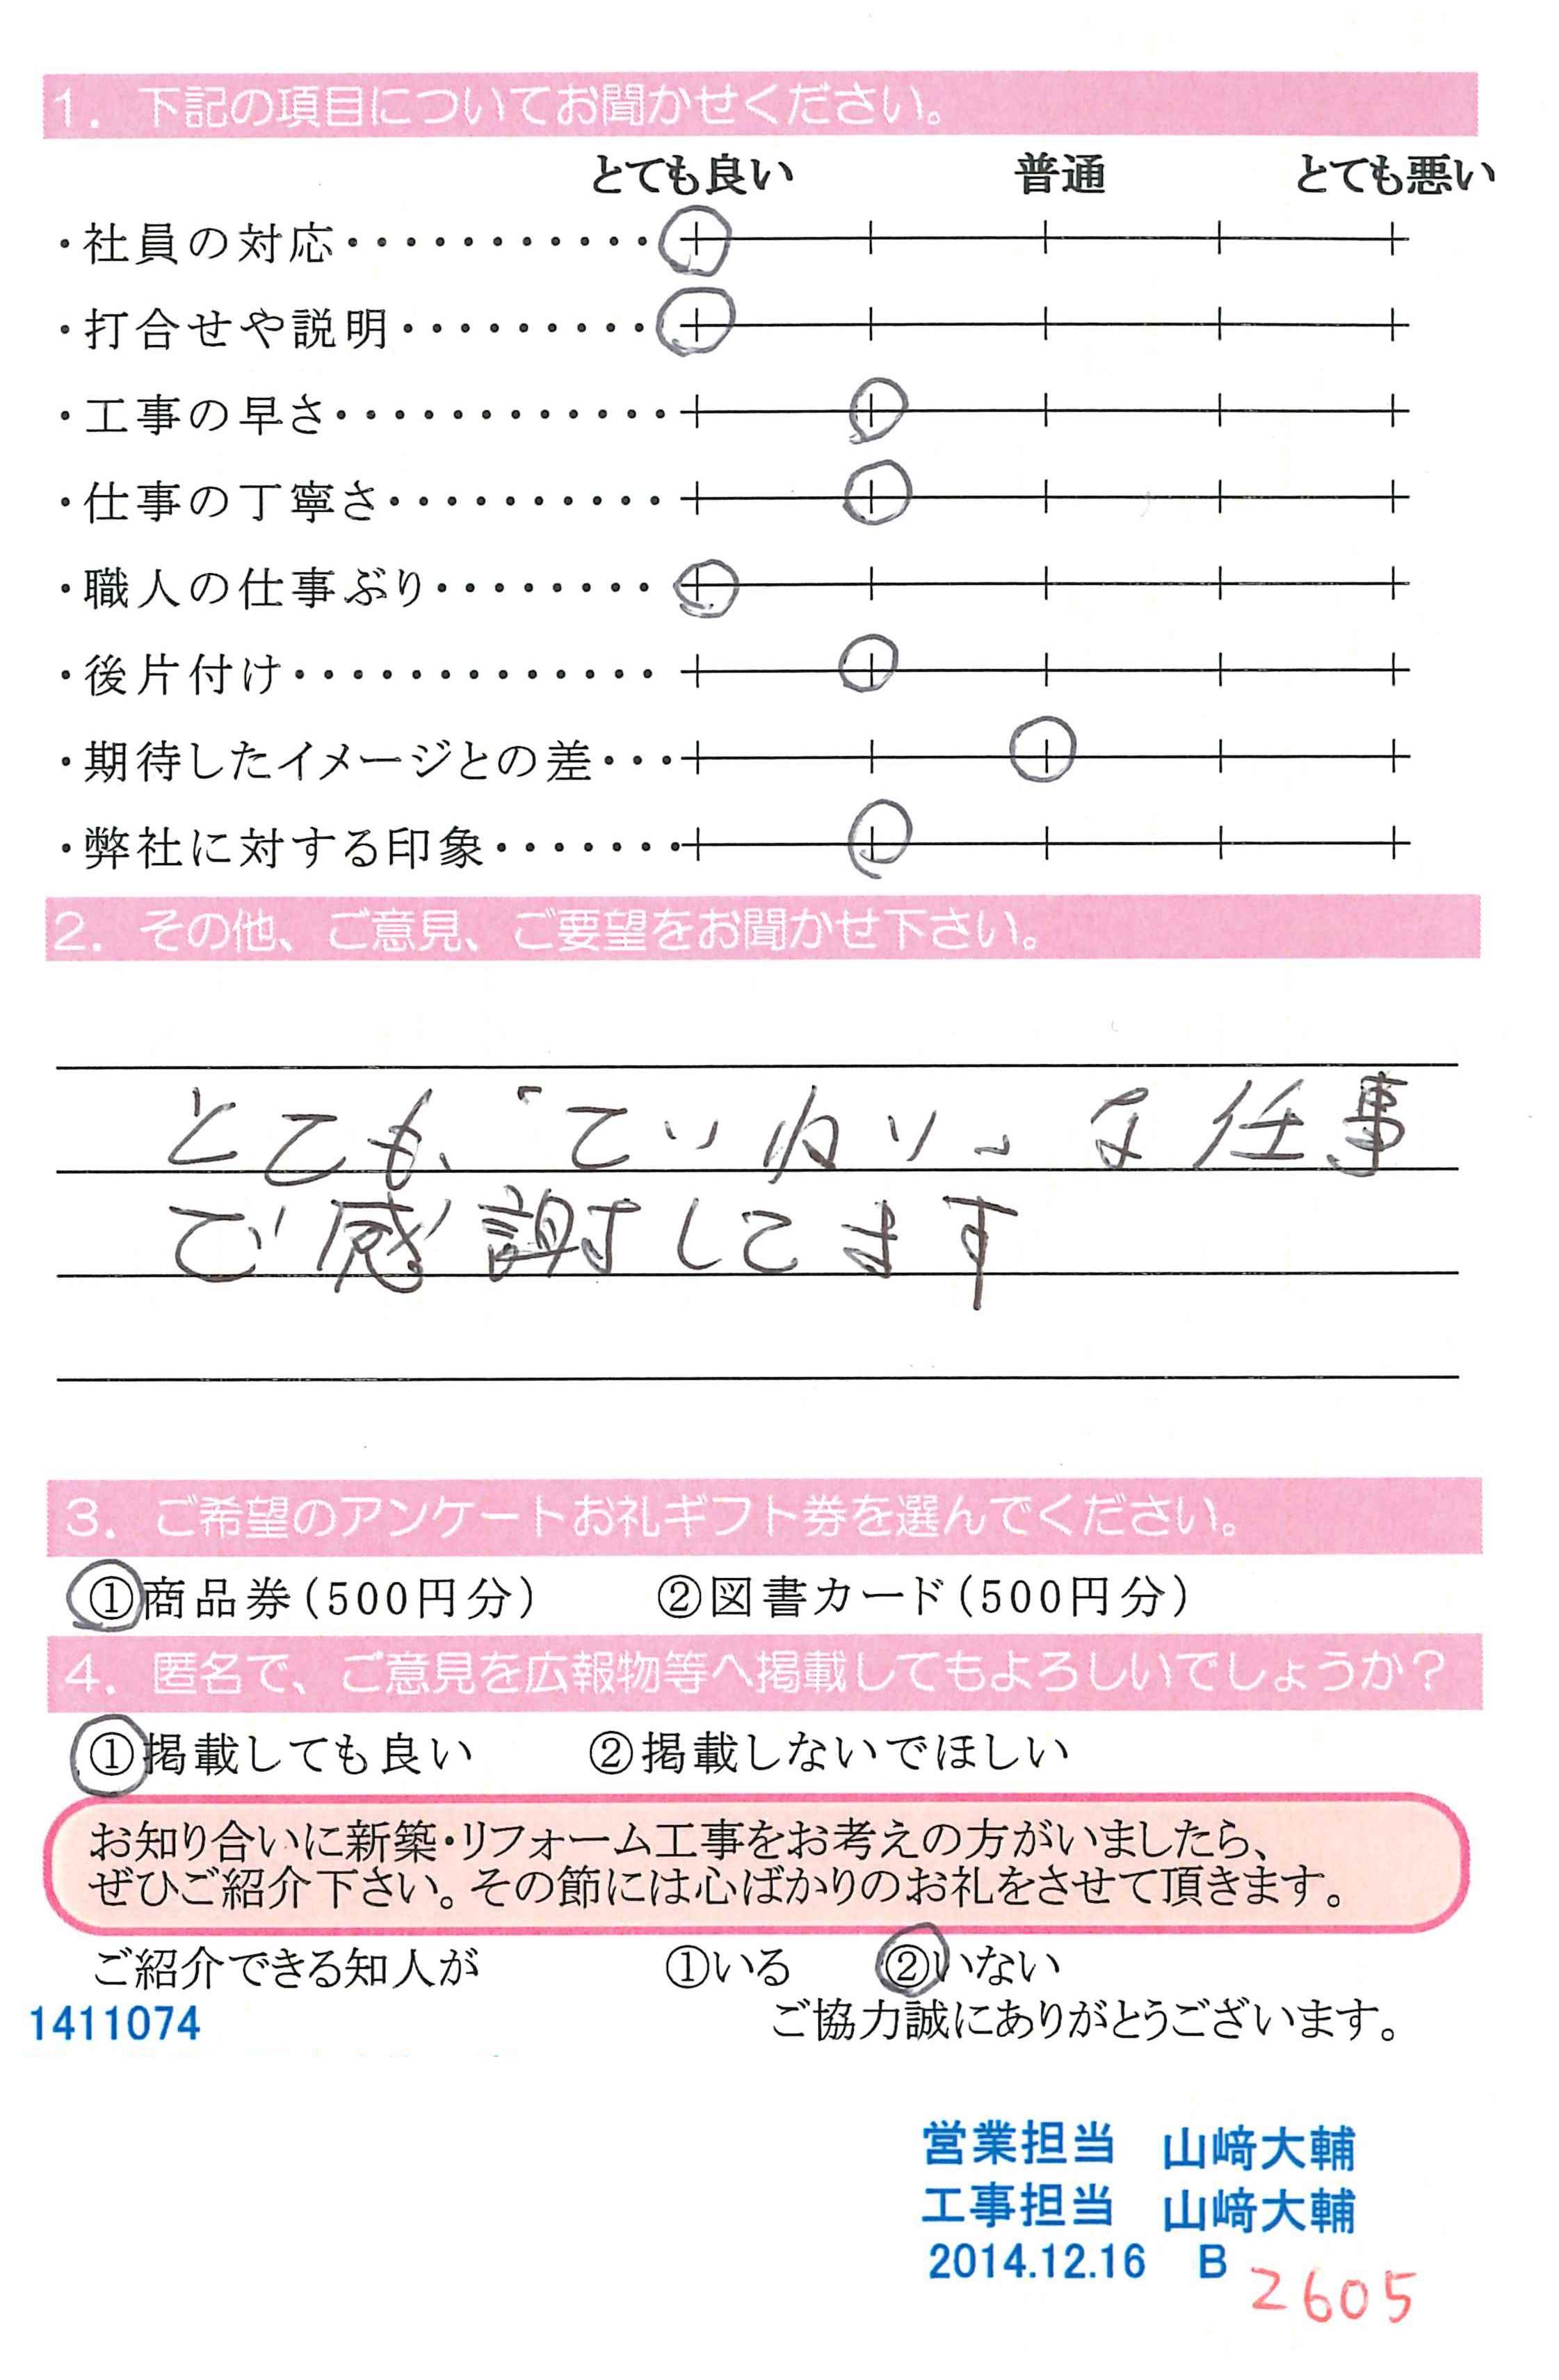 1. 下記の項目についてお聞かせください。
とても良い 普通 とても悪い
・社員の対応・・・・・・・・・・・
・打合せや説明・・・・・・・・・
・工事の早さ・・・・・・・・・・・・
・仕事の丁寧さ・・・・・・・・・・
・職人の仕事ぶり・・・・・・・・
・後片付け・・・・・・・・・・・・・
・期待したイメージとの差・・・
・弊社に対する印象・・・・・・・
2. その他、ご意見、ご要望をお聞かせ下さい。
とても「ていねい」な仕事
で感謝してます
3. ご希望のアンケートお礼ギフト券を選んでください。
①商品券(500円分) ②図書カード(500円分)
4. 匿名で、ご意見を広報物等へ掲載してもよろしいでしょうか?
①掲載しても良い ②掲載しないでほしい
お知り合いに新築・リフォーム工事をお考えの方がいましたら、
ぜひご紹介下さい。その節には心ばかりのお礼をさせて頂きます。
ご紹介できる知人が ①いる ②いない
1411074 ご協力誠にありがとうございます。
営業担当 山﨑大輔
工事担当 山﨑大輔
2014.12.16 B 2605